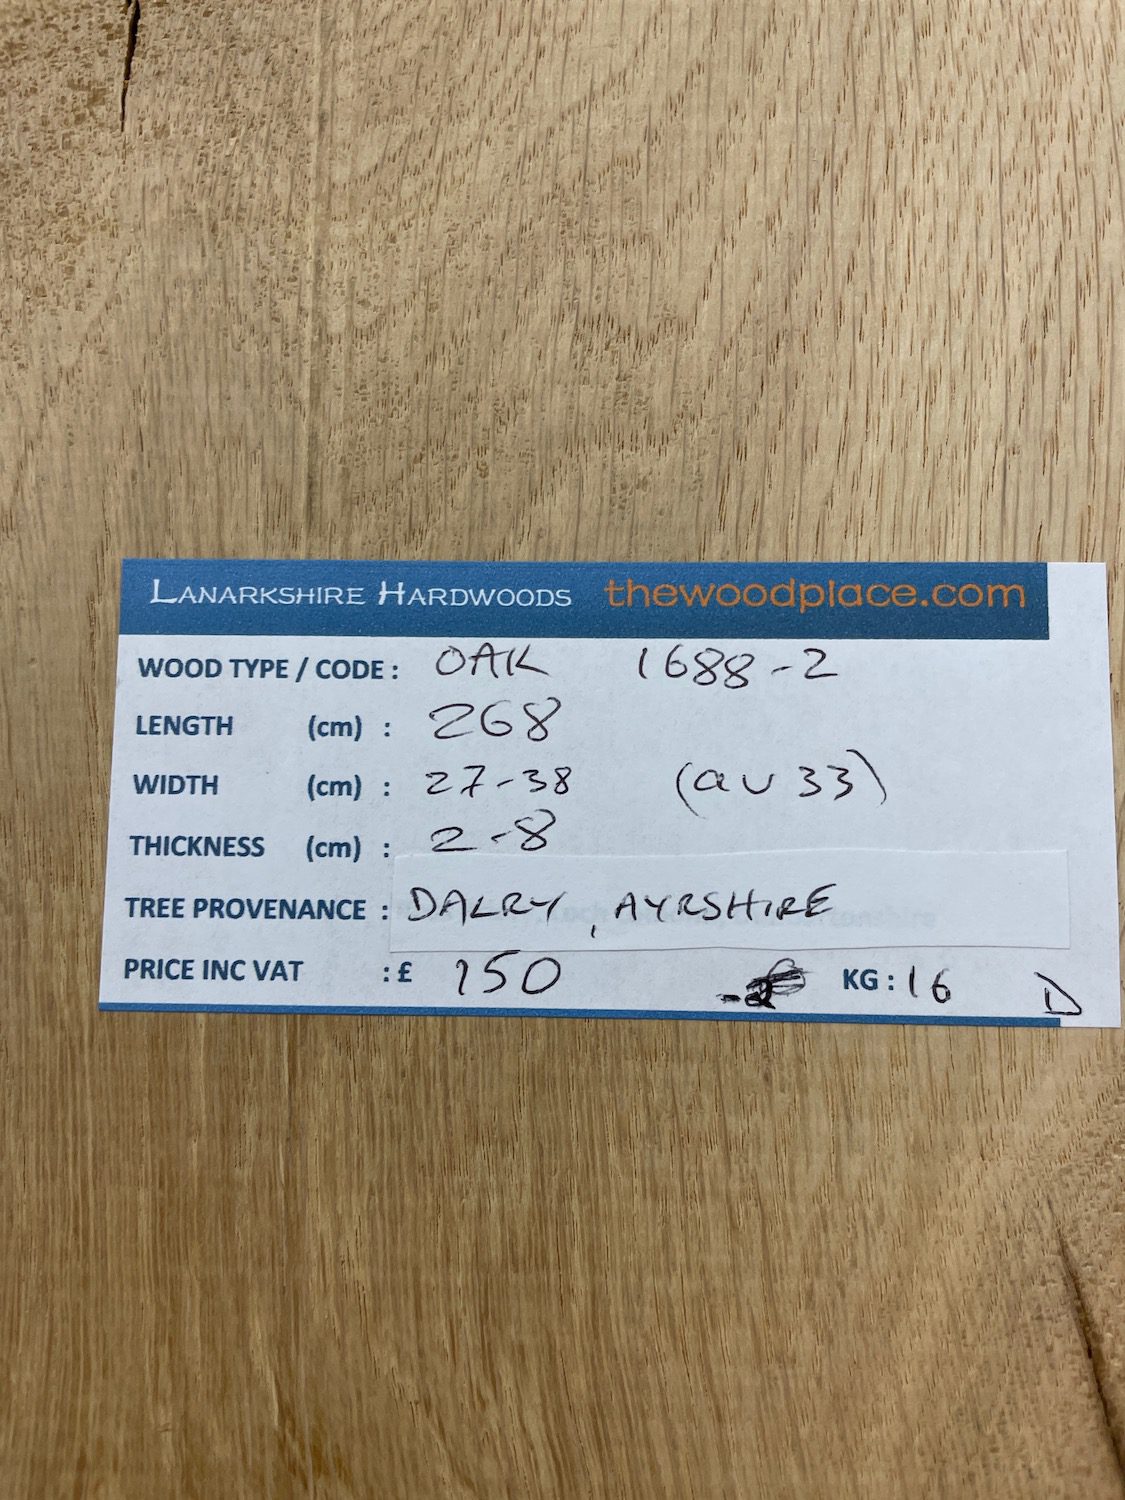 LANARKSHIRE HARDWOODS thewoodplace.com
WOOD TYPE / CODE : OAK 1688-2
LENGTH (cm) : 268
WIDTH (cm) : 27-38 (av 33)
THICKNESS (cm) : 2-8
TREE PROVENANCE : DALRY, AYRSHIRE
PRICE INC VAT : £ 150 KG : 16 D